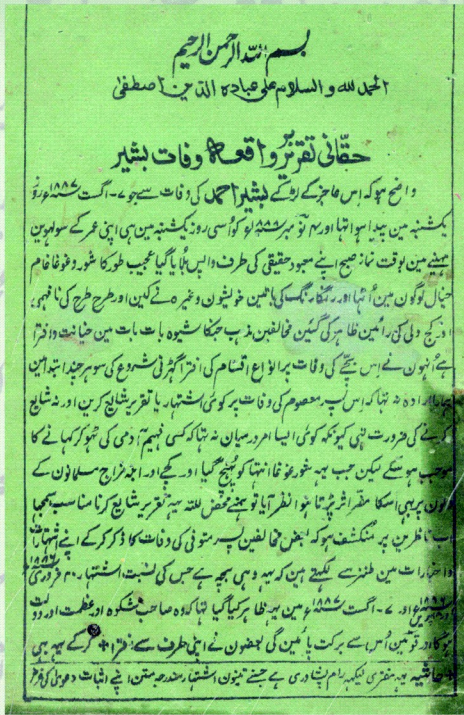 بسم اللہ الرحمن الرحیم
الحمد للہ والسلام علی عبادہ الذین اصطفی
حقّانی تقریر بر واقعہ وفات بشیر
واضح ہو کہ اس عاجز کے لڑکے بشیر احمد کی وفات سے جو ۷۔ اگست ۱۸۸۷ء روز
یکشنبہ مین پیدا ہوا تہا اور ۴ نومبر ۱۸۸۸ء کو اُسی روز یکشنبہ مین ہی اپنی عمر کے سولہوین
مہینے مین بوقت نماز صبح اپنے معبود حقیقی کی طرف واپس بُلایا گیا عجیب طور کا شور و غوغا خام
خیال لوگون مین اُٹہا اور رنگارنگ کی باتین خویشون وغیرہ نے کین اور طرح طرح کی نافہمی
اور کج دلی کی رائین ظاہر کی گئین مخالفین مذہب جنکا شیوہ بات بات مین خیانت و افترا
ہے اُنہون نے اس بچے کی وفات پر انواع اقسام کی افترا گہڑنی شروع کی سو ہر چند ابتدا مین
ہمارا ارادہ نہ تہا کہ اس پسر معصوم کی وفات پر کوئی اشتہار یا تقریر شایع کرین اور نہ شایع
کرنے کی ضرورت تہی کیونکہ کوئی ایسا امر درمیان نہ تہا کہ کسی فہیم آدمی کی ٹہوکر کہانے کا
موجب ہو سکے لیکن جب یہہ شور و غوغا انتہا کو پہنچ گیا اور کچے اور ابلہ مزاج مسلمانون کے
دلون پر بہی اسکا مضر اثر پڑتا ہوا نظر آیا تو ہمنے محض للہ یہہ تقریر شایع کرنا مناسب سمجہا
اب ناظرین پر منکشف ہو کہ بعض مخالفین پسر متوفی کی وفات کا ذکر کر کے اپنے اشتہارات
و اخبارات مین طنز سے لکہتے ہین کہ یہہ وہی بچہ ہے جس کی نسبت اشتہار ۲۰ فروری ۱۸۸۶ء
اور ۷۔ اگست ۱۸۸۷ء مین یہہ ظاہر کیا گیا تہا کہ وہ صاحب شکوہ اور عظمت اور دولت
ہوگا اور قومین اُس سے برکت پائین گی بعضون نے اپنی طرف سے افترا کر کے یہہ بہی
حاشیہ یہہ مفتری لیکہرام پشاوری ہے جسنے تینون اشتہار مندرجہ متن اپنے اثبات دعوی کی غرض